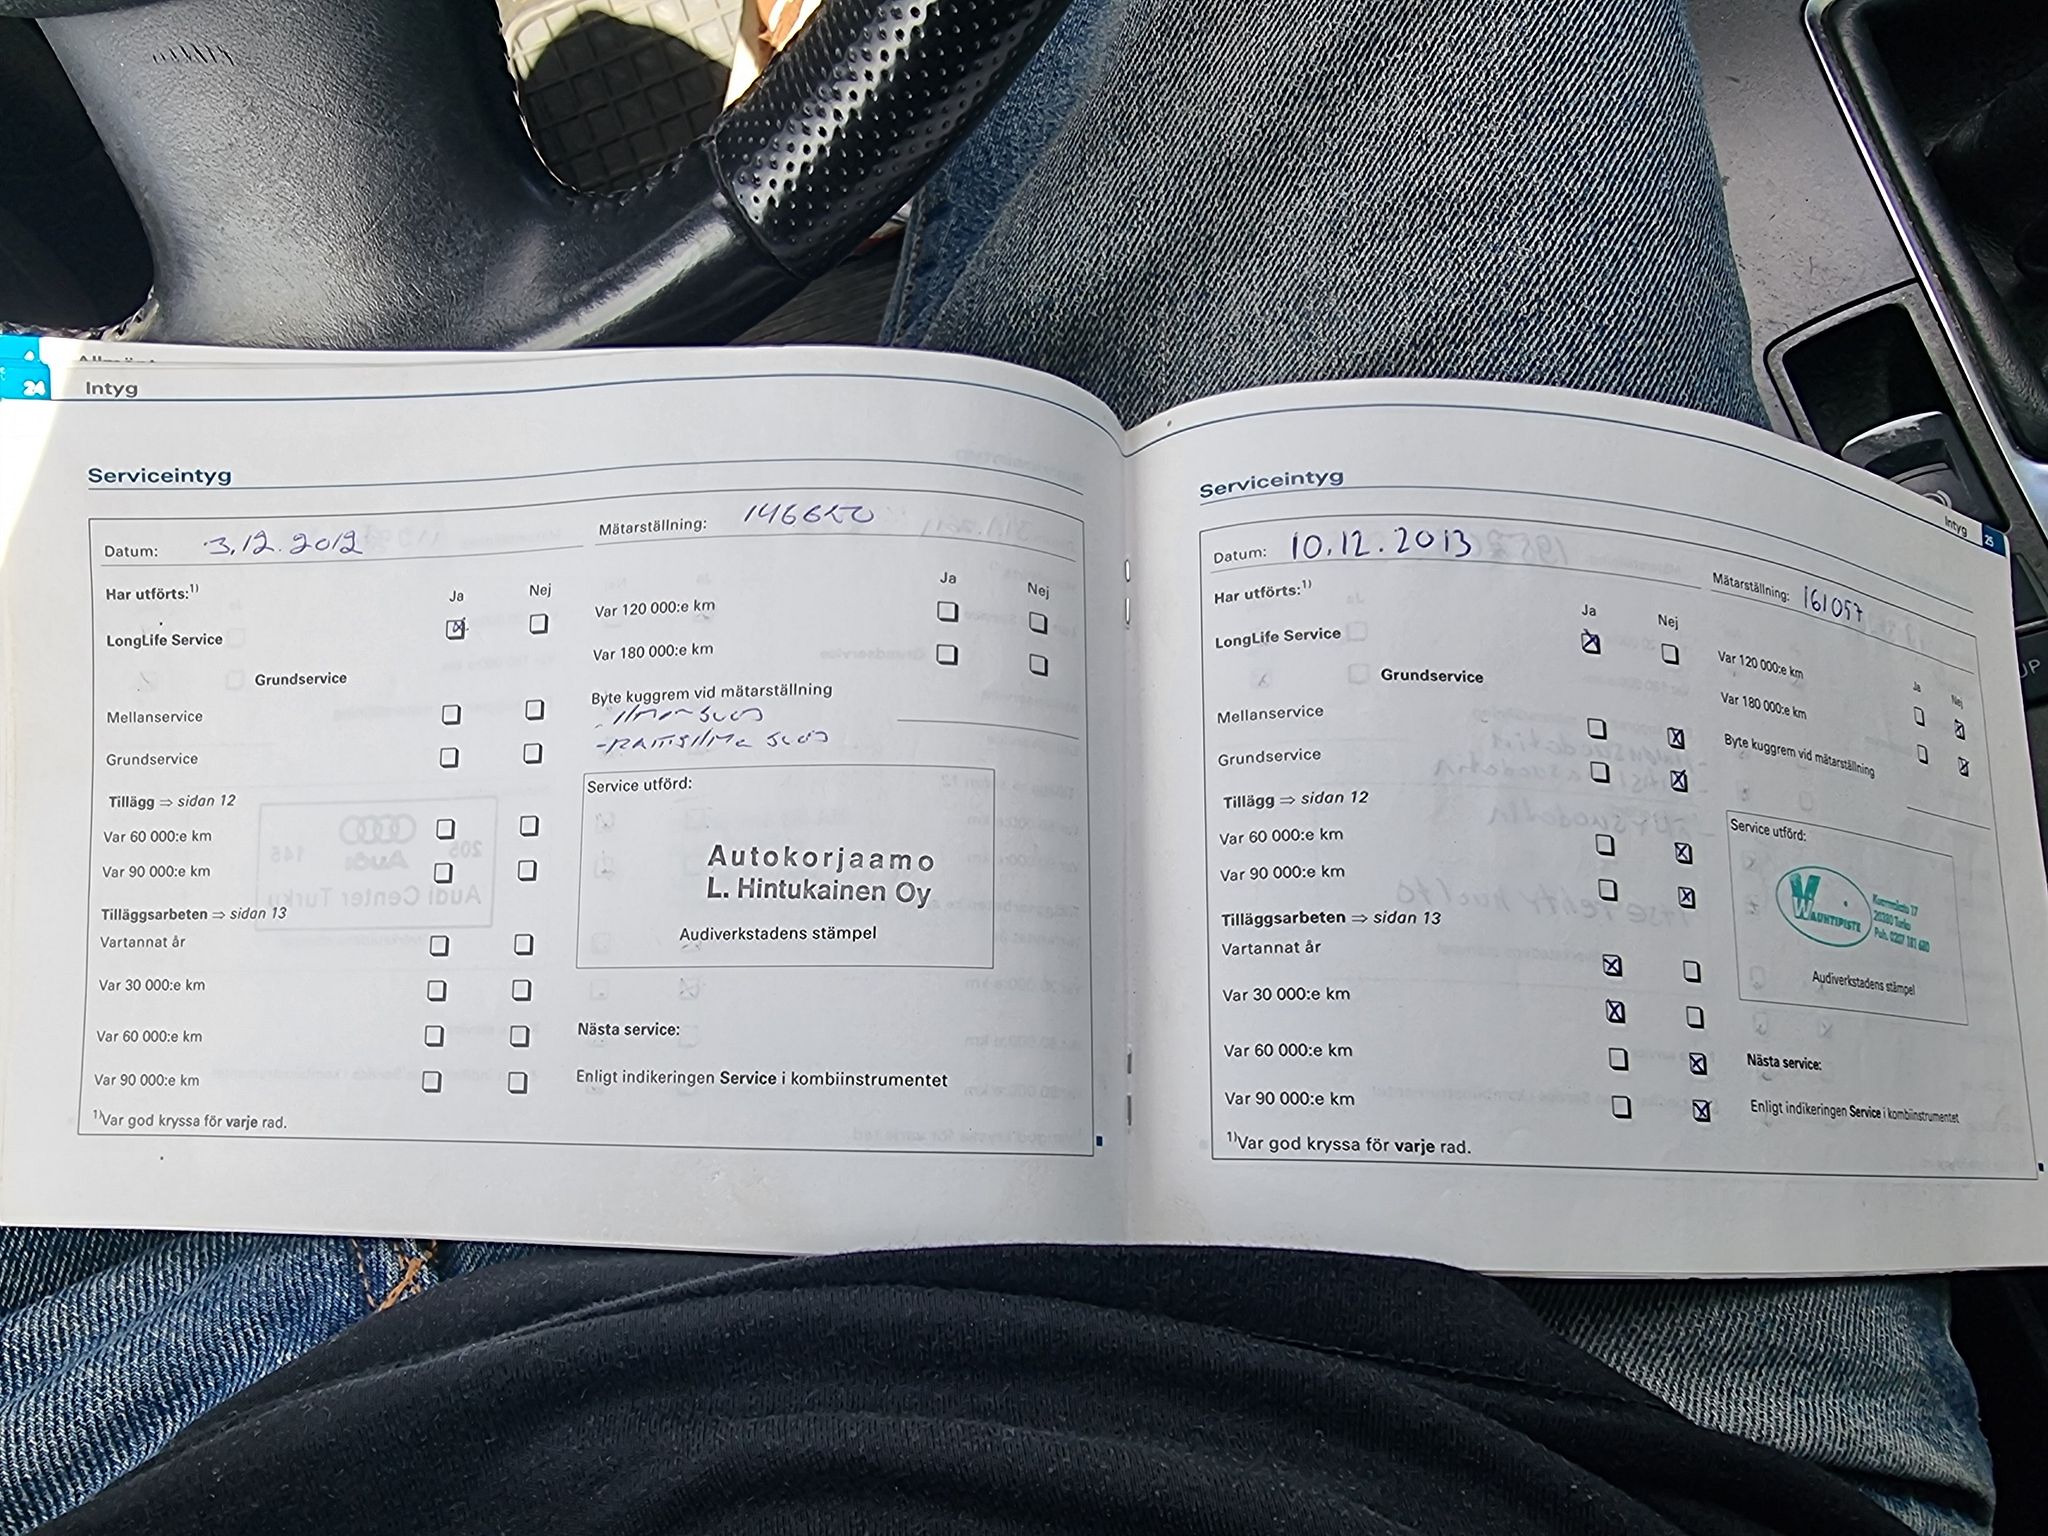 24
Intyg
Serviceintyg
Datum: 3.12.2012
Mätarställning:
Har utförts:1)
Ja Nej
LongLife Service
Grundservice
Mellanservice
Grundservice
Tillägg ⇒ sidan 12
Var 60 000:e km
Var 90 000:e km
Tilläggsarbeten ⇒ sidan 13
Vartannat år
Var 30 000:e km
Var 60 000:e km
Var 90 000:e km
1)Var god kryssa för varje rad.
Ja Nej
Var 120 000:e km
Var 180 000:e km
Byte kuggrem vid mätarställning
Service utförd:
Autokorjaamo
L. Hintukainen Oy
Audiverkstadens stämpel
Nästa service:
Enligt indikeringen Service i kombiinstrumentet
Intyg 25
Serviceintyg
Datum: 10.12.2013
Mätarställning: 161057
Har utförts:1)
Ja Nej
LongLife Service
Grundservice
Mellanservice
Grundservice
Tillägg ⇒ sidan 12
Var 60 000:e km
Var 90 000:e km
Tilläggsarbeten ⇒ sidan 13
Vartannat år
Var 30 000:e km
Var 60 000:e km
Var 90 000:e km
1)Var god kryssa för varje rad.
Var 120 000:e km
Ja Nej
Var 180 000:e km
Byte kuggrem vid mätarställning
Service utförd:
WAUHTIPISTE
17
20380 Turku
Puh. 0207 181 680
Audiverkstadens stämpel
Nästa service:
Enligt indikeringen Service i kombiinstrumentet